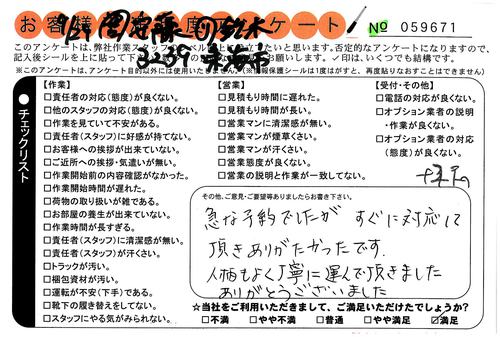 お客様 度アンケート
№ 059671
9/29
3259 東海市
このアンケートは、弊社作業スタッフの ベル 上に立 たいと思います。否定的なアンケートになりますので、
記入後シールを上に貼って下 ✓印は、いくつでも結構です。
※このアンケートは、アンケート目的以外には使用いたしません。(※情報保護シールは1度はがすと、再度貼りなおすことはできません)
●チェックリスト
【作業】
□責任者の対応(態度)が良くない。
□他のスタッフの対応(態度)が良くない。
□作業を見ていて不安がある。
□責任者(スタッフ)に好感が持てない。
□お客様への挨拶が出来ていない。
□ご近所への挨拶・気遣いが無い。
□作業開始前の内容確認がなかった。
□作業開始時間が遅れた。
□荷物の取り扱いが雑である。
□お部屋の養生が出来ていない。
□作業時間が長すぎる。
□責任者(スタッフ)に清潔感が無い。
□責任者(スタッフ)が汗くさい。
□トラックが汚い。
□梱包資材が汚い。
□運転が不安(下手)である。
□靴下の履き替えをしてない。
□スタッフにやる気がみられない。
【営業】
□見積もり時間に遅れた。
□見積もり時間が長い。
□営業マンに清潔感が無い。
□営業マンが煙草くさい。
□営業マンが汗くさい。
□営業態度が良くない。
□営業の説明と作業が一致してない。
【受付・その他】
□電話の対応が良くない。
□オプション業者の説明
・作業が良くない。
□オプション業者の対応
(態度)が良くない。
その他、ご意見・ご要望等ありましたらお書き下さい。
急な予約でしたが すぐに対応して
頂きありがたかったです。
人柄もよく丁寧に運んで頂きました
ありがとうございました
☆当社をご利用いただきまして、ご満足いただけたでしょうか?
□不満 □やや不満 □普通 □やや満足 ☑満足